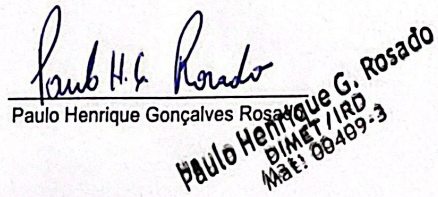 Paulo H. G. Rosado
Paulo Henrique Gonçalves Rosado
Paulo Henrique G. Rosado
DIMET/IRD
Mat: 00409-3